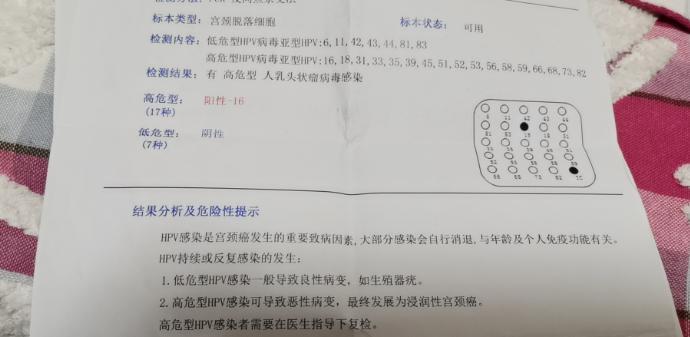 标本类型：宫颈脱落细胞 标本状态：可用
检测内容：低危型HPV病毒亚型HPV:6,11,42,43,44,81,83
高危型HPV病毒亚型HPV:16,18,31,33,35,39,45,51,52,53,56,58,59,66,68,73,82
检测结果：有 高危型 人乳头状瘤病毒感染
高危型： 阳性-16
(17种)
低危型： 阴性
(7种)
结果分析及危险性提示
HPV感染是宫颈癌发生的重要致病因素,大部分感染会自行消退,与年龄及个人免疫功能有关。
HPV持续或反复感染的发生：
1.低危型HPV感染一般导致良性病变，如生殖器疣。
2.高危型HPV感染可导致恶性病变，最终发展为浸润性宫颈癌。
高危型HPV感染者需要在医生指导下复检。